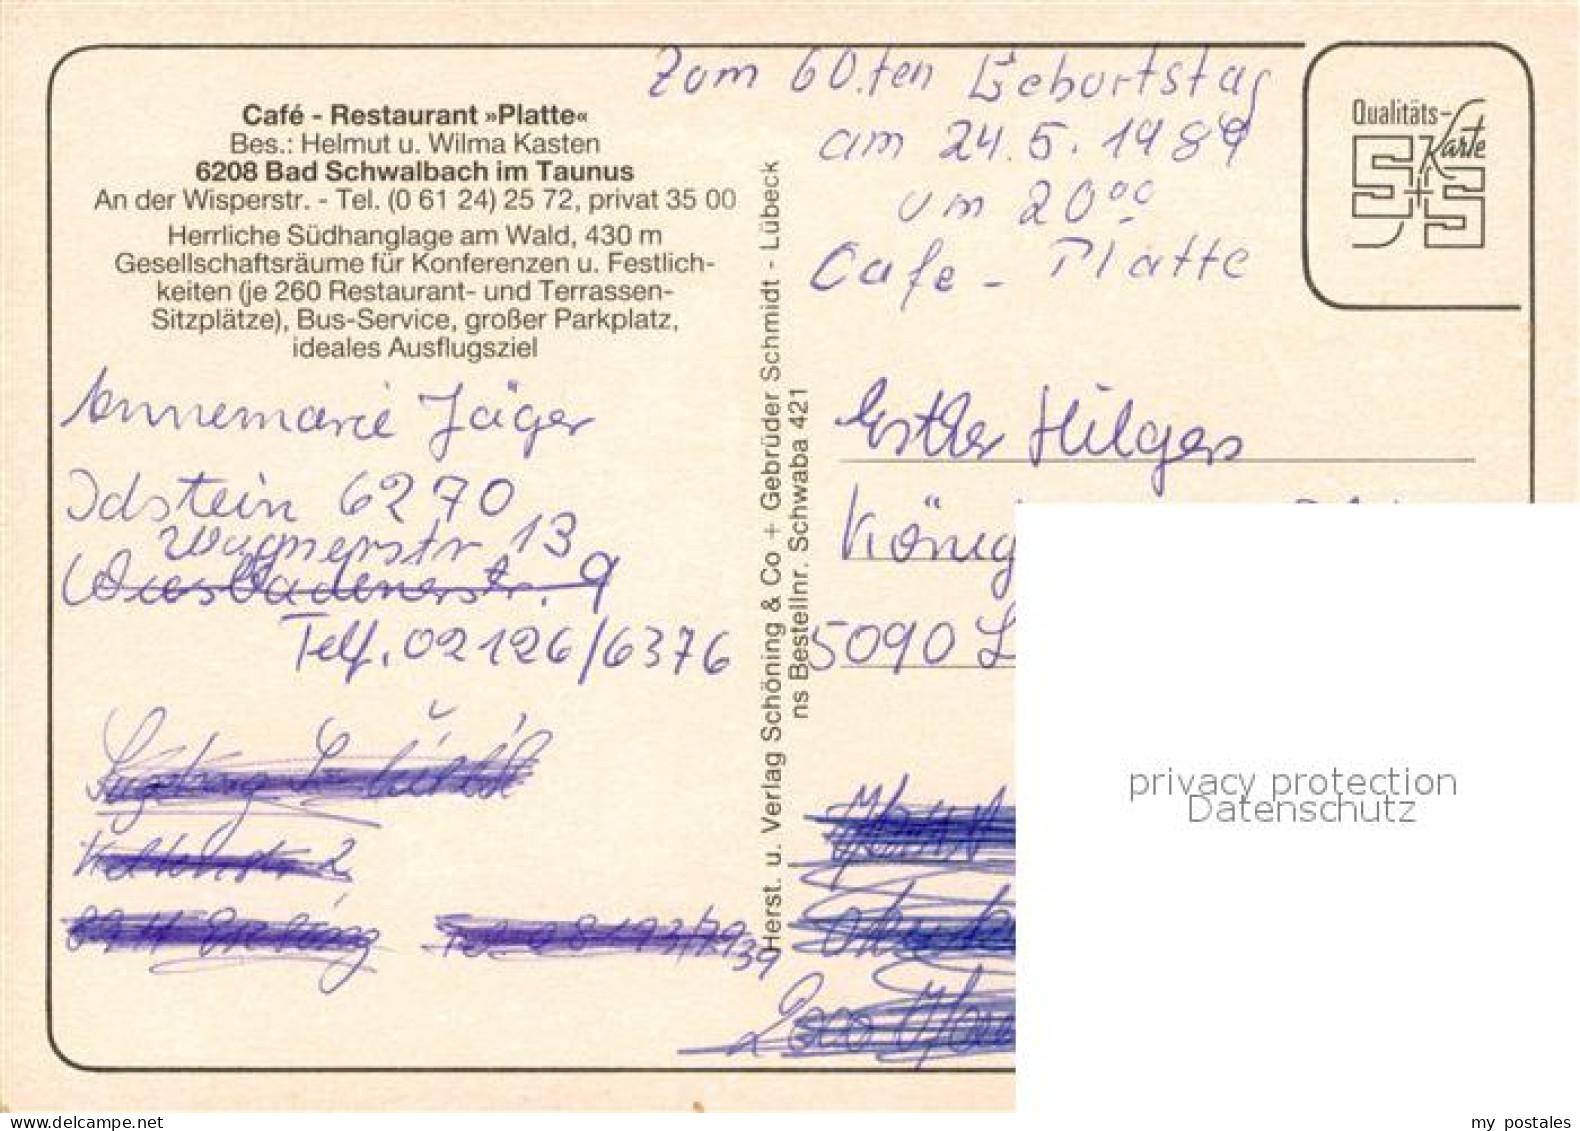 Zum 60.ten Geburtstag
am 24.5.1989
um 20⁰⁰
Cafe - Platte
Qualitäts-
Karte
S+S
Café - Restaurant »Platte«
Bes.: Helmut u. Wilma Kasten
6208 Bad Schwalbach im Taunus
An der Wisperstr. - Tel. (0 61 24) 25 72, privat 35 00
Herrliche Südhanglage am Wald, 430 m
Gesellschaftsräume für Konferenzen u. Festlich-
keiten (je 260 Restaurant- und Terrassen-
Sitzplätze), Bus-Service, großer Parkplatz,
ideales Ausflugsziel
Annemarie Jäger
Idstein 6270
Wagnerstr 13
Wiesbadenerstr. 9
Telf. 02126/6376
Herst. u. Verlag Schöning & Co + Gebrüder Schmidt - Lübeck
ns Bestellnr. Schwaba 421
Esther Hilgers
König
5090 L
privacy protection
Datenschutz
my postales
www.delcampe.net